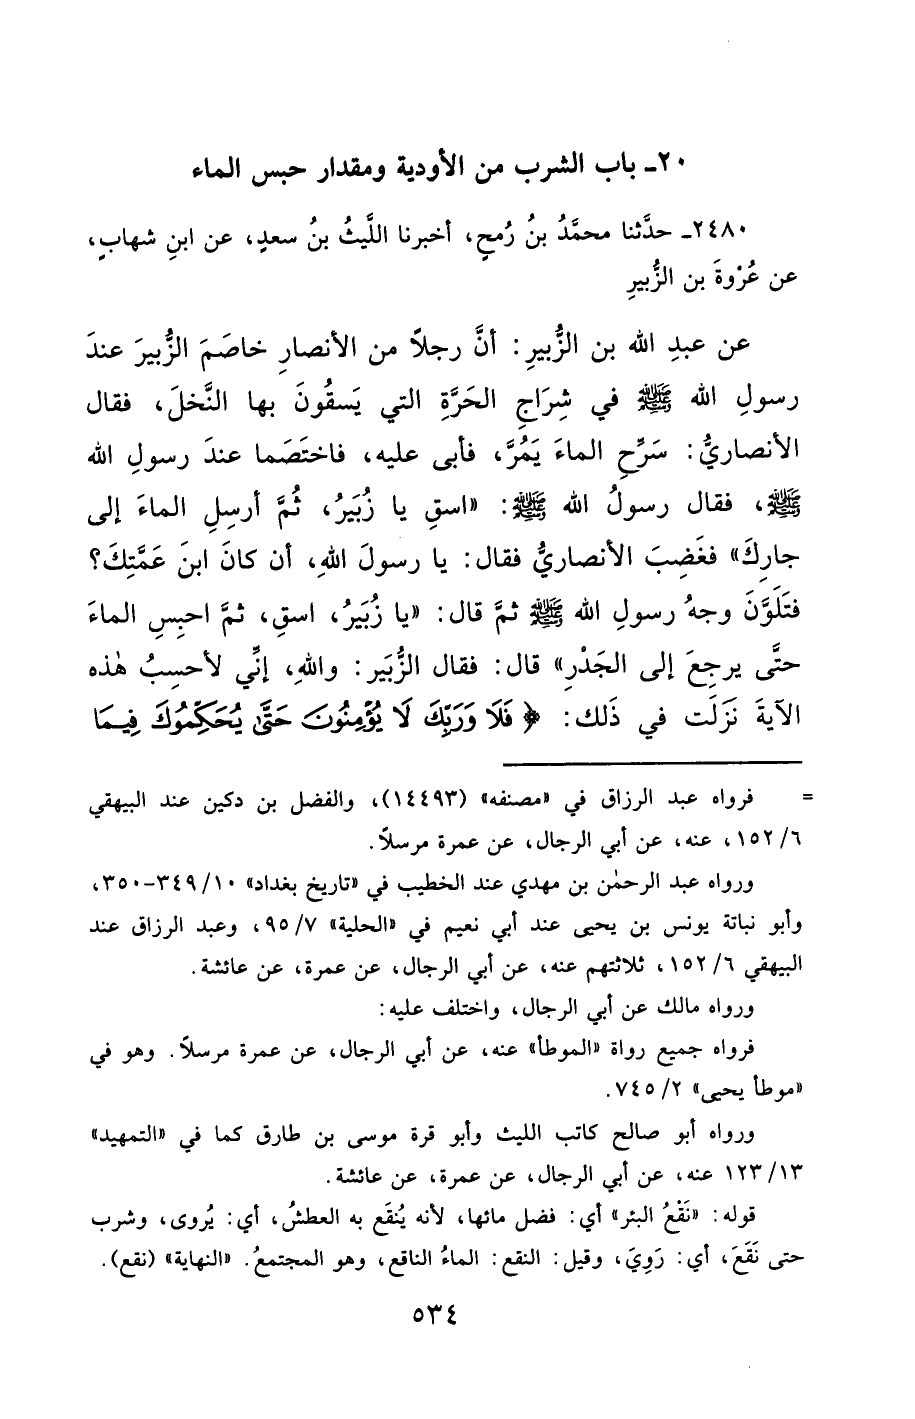 ٢٠ـ باب الشرب من الأودية ومقدار حبس الماء
٢٤٨٠ـ حدَّثنا محمَّدُ بنُ رُمحٍ، أخبرنا اللَّيثُ بنُ سعدٍ، عن ابنِ شهابٍ،
عن عُرْوةَ بن الزُّبيرِ
عن عبدِ الله بن الزُّبيرِ: أنَّ رجلاً من الأنصارِ خاصَمَ الزُّبيرَ عندَ
رسولِ الله ﷺ في شِرَاجِ الحَرَّةِ التي يَسقُونَ بها النَّخلَ، فقال
الأنصاريُّ: سَرِّحِ الماءَ يَمُرَّ، فأبى عليه، فاختَصَما عندَ رسولِ الله
ﷺ، فقال رسولُ الله ﷺ: «اسقِ يا زُبَيرُ، ثُمَّ أرسِلِ الماءَ إلى
جارِكَ» فغَضِبَ الأنصاريُّ فقال: يا رسولَ اللهِ، أن كانَ ابنَ عَمَّتِكَ؟
فتَلَوَّنَ وجهُ رسولِ الله ﷺ ثمَّ قال: «يا زُبَيرُ، اسقِ، ثمَّ احبِسِ الماءَ
حتَّى يرجِعَ إلى الجَدْرِ» قال: فقال الزُّبَير: واللهِ، إنِّي لأحسِبُ هٰذه
الآيةَ نَزَلَت في ذَلك: ﴿ فَلَا وَرَبِّكَ لَا يُؤْمِنُونَ حَتَّىٰ يُحَكِّمُوكَ فِيمَا
= فرواه عبد الرزاق في «مصنفه» (١٤٤٩٣)، والفضل بن دكين عند البيهقي
٦/ ١٥٢، عنه، عن أبي الرجال، عن عمرة مرسلاً.
ورواه عبد الرحمٰن بن مهدي عند الخطيب في «تاريخ بغداد» ١٠/ ٣٤٩-٣٥٠،
وأبو نباتة يونس بن يحيى عند أبي نعيم في «الحلية» ٧/ ٩٥، وعبد الرزاق عند
البيهقي ٦/ ١٥٢، ثلاثتهم عنه، عن أبي الرجال، عن عمرة، عن عائشة.
ورواه مالك عن أبي الرجال، واختلف عليه:
فرواه جميع رواة «الموطأ» عنه، عن أبي الرجال، عن عمرة مرسلاً. وهو في
«موطأ يحيى» ٢/ ٧٤٥.
ورواه أبو صالح كاتب الليث وأبو قرة موسى بن طارق كما في «التمهيد»
١٣/ ١٢٣ عنه، عن أبي الرجال، عن عمرة، عن عائشة.
قوله: «نَقْعُ البئر» أي: فضل مائها، لأنه يُنقَع به العطشُ، أي: يُروى، وشرب
حتى نَقَعَ، أي: رَوِيَ، وقيل: النقع: الماءُ الناقع، وهو المجتمعُ. «النهاية» (نقع).
٥٣٤